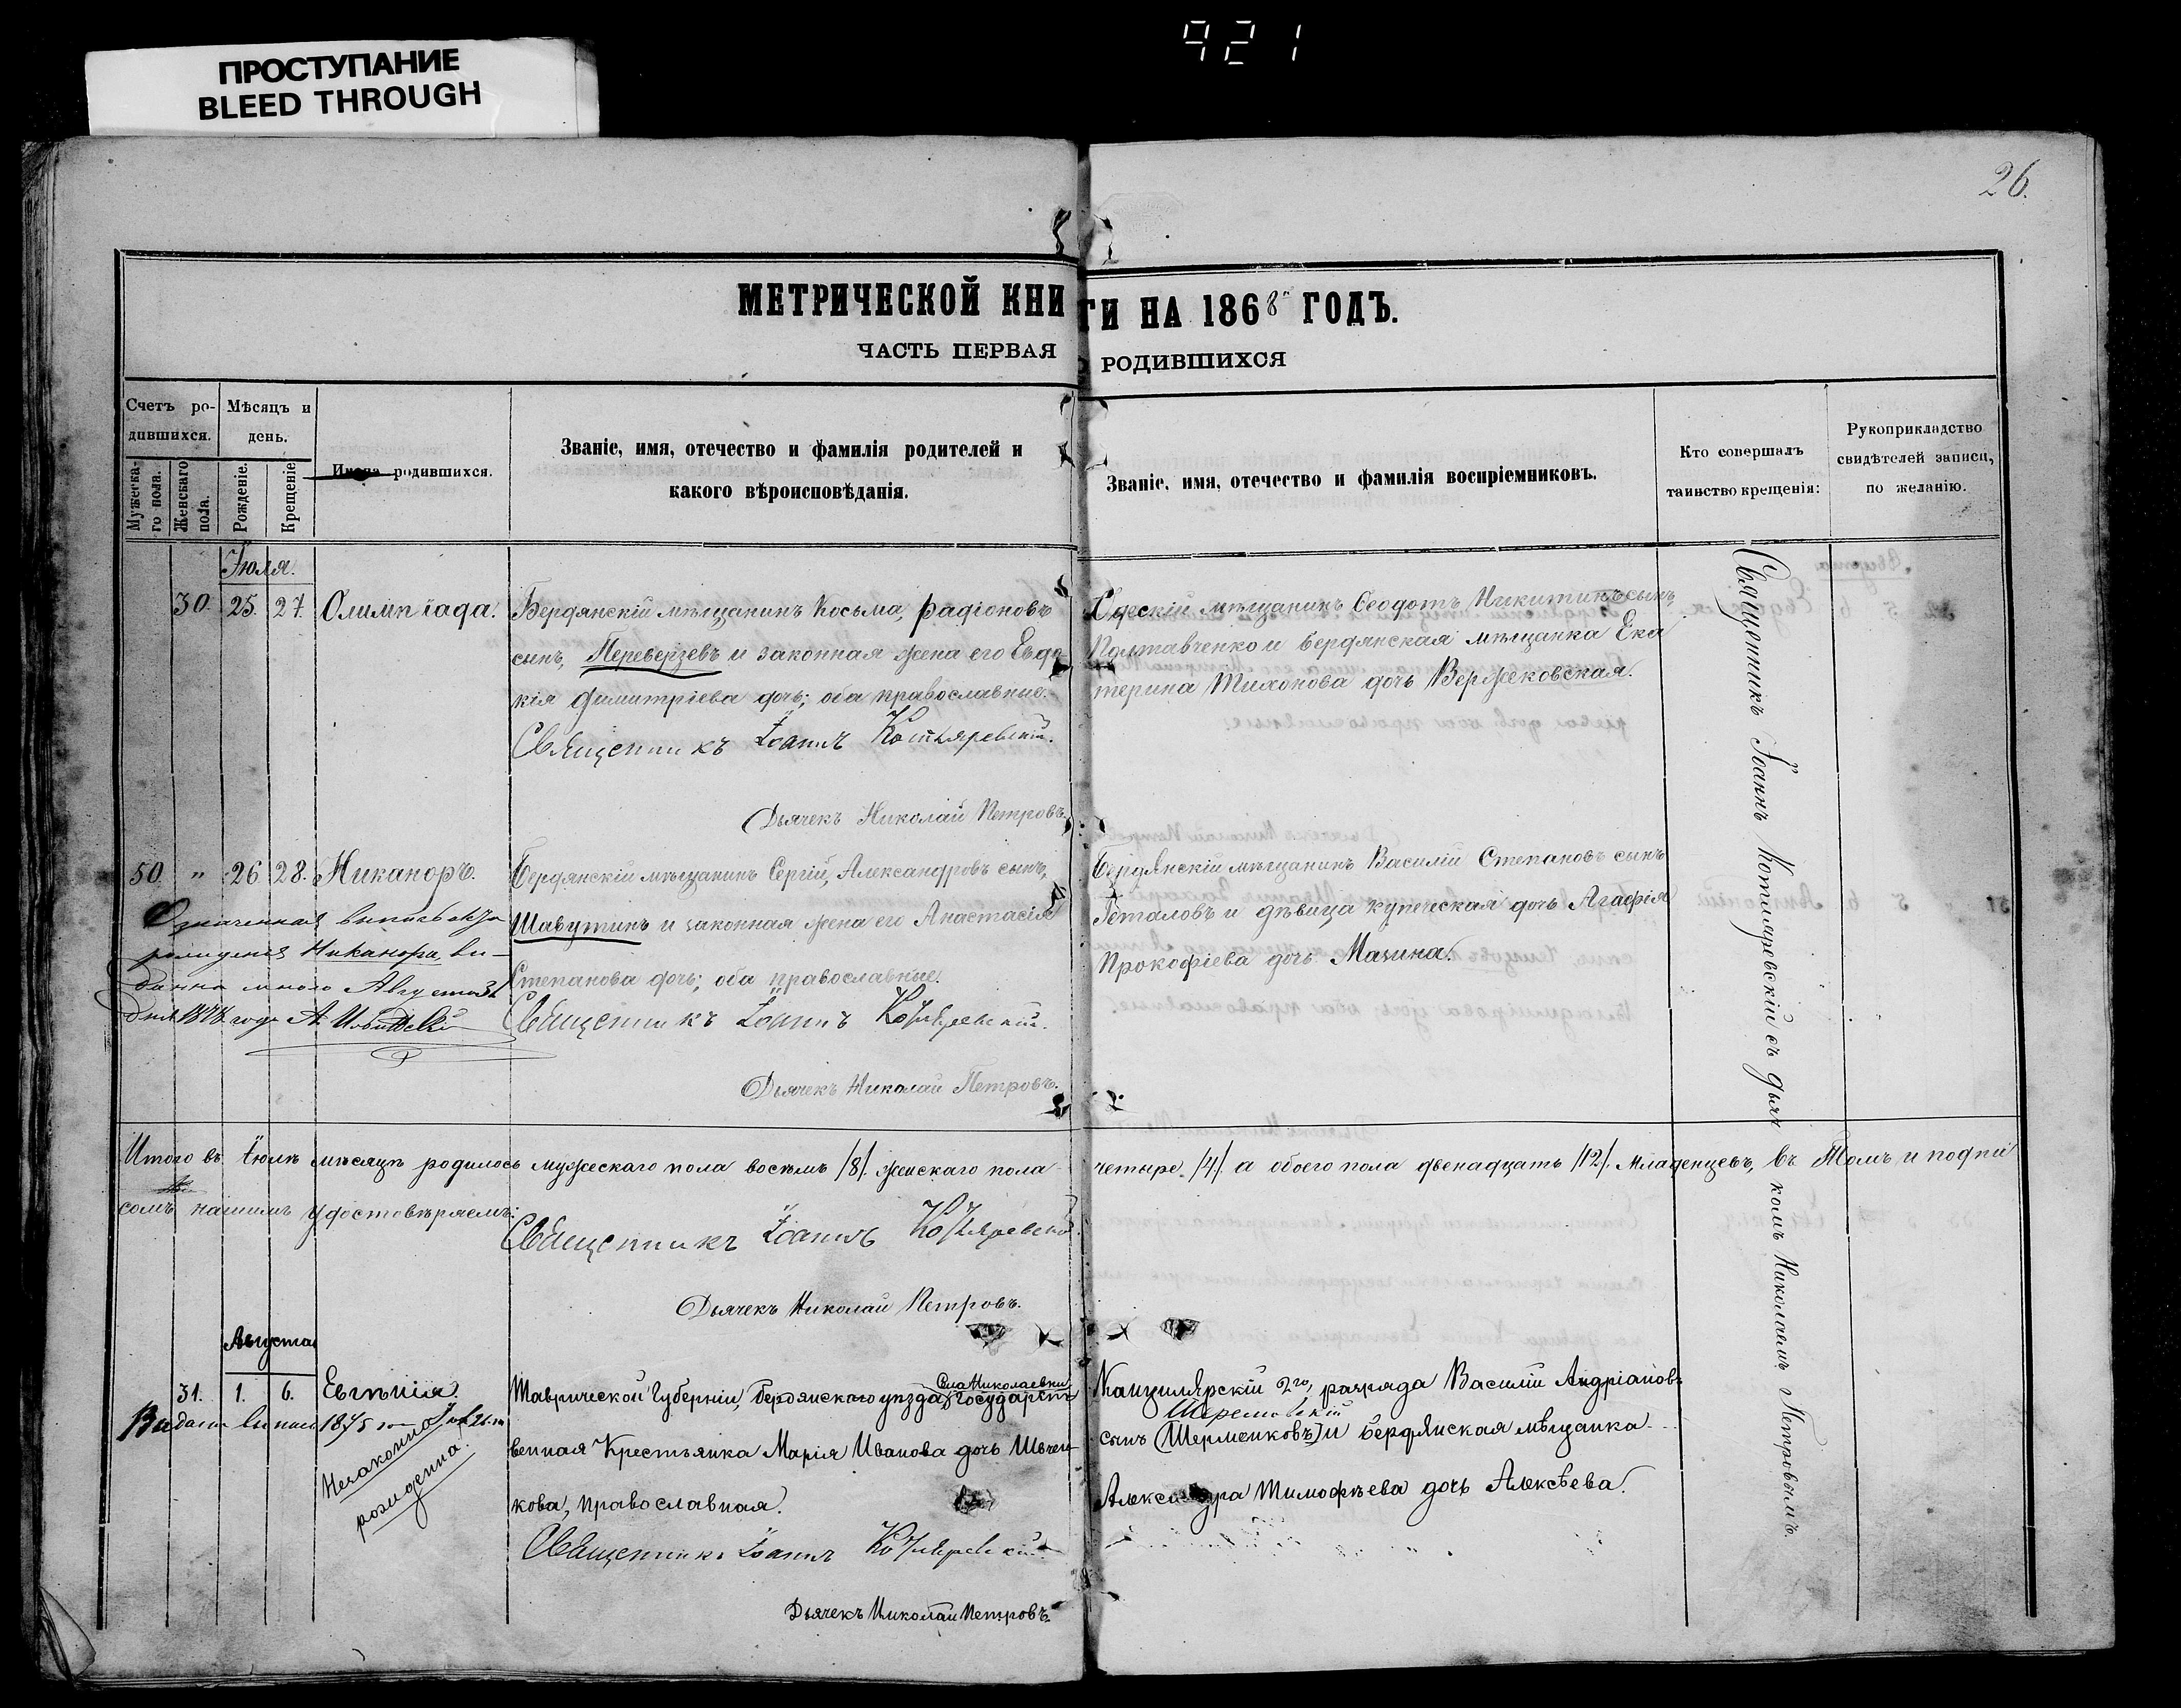 921
ПРОСТУПАНИЕ
BLEED THROUGH
26.
МЕТРИЧЕСКОЙ КНИГИ НА 1868й ГОДЪ.
ЧАСТЬ ПЕРВАЯ О РОДИВШИХСЯ
Счетъ ро-
дившихся.
Мужеска-
го пола.
Женскаго
пола.
Мѣсяцъ и
день.
Рожденіе.
Крещеніе.
Имена родившихся.
Званіе, имя, отечество и фамилія родителей и
какого вѣроисповѣданія.
Званіе, имя, отечество и фамилія воспріемниковъ.
Кто совершалъ
таинство крещенія:
Рукоприкладство
свидѣтелей записи,
по желанію.
Іюля.
30. 25. 27. Олимпіада.
Бердянскій мѣщанинъ Косьма, Радіоновъ
сынъ, Переверзевъ и законная жена его Евдо
кія Димитріева дочь; оба православные.
Священникъ Іоаннъ Котляревскій.
Дьячекъ Николай Петровъ.
Одескій мѣщанинъ Ѳеодотъ Никитинъ сынъ,
Полтавченко и бердянская мѣщанка Ека
терина Тихонова дочь Вержековская.
50. " 26. 28. Никаноръ.
Означенная выпись о
рожденіи Никанора, вы-
данна мною Августа 31
дня 1878 года А.
Бердянскій мѣщанинъ Сергій, Александровъ сынъ,
Шавутинъ и законная жена его Анастасія
Степанова дочь; оба православные.
Священникъ Іоаннъ Котляревскій.
Дьячекъ Николай Петровъ.
Бердянскій мѣщанинъ Василій Степановъ сынъ
Геталовъ и дѣвица купеческая дочь Агафія
Прокофіева дочь Мазина.
Итого въ Іюлѣ мѣсяцѣ родилось мужескаго пола восемь /8/. женскаго пола четыре. /4/. а обоего пола двенадцать /12/. младенцевъ, въ томъ и подпи
сомъ нашимъ удостовѣряемъ:
Священникъ Іоаннъ Котляревскій.
Дьячекъ Николай Петровъ.
Августа
31. 1. 6. Евгенія.
Выдана выпись 1875 года
Незаконно
рожденна.
Села Николаевки
Таврической Губерніи, Бердянскаго уѣзда, государст
венная Крестьянка Марія Иванова дочь Швен
кова, православная.
Священникъ Іоаннъ Котляревскій.
Дьячекъ Николай Петровъ.
Канцилярскій 2го, разряда Василій Андріановъ
сынъ (Шерменковъ) и бердянская мѣщанка
Александра Тимофѣева дочь Алексѣева.
Священникъ Іоаннъ Котляревскій съ дьячкомъ Николаемъ Петровымъ.